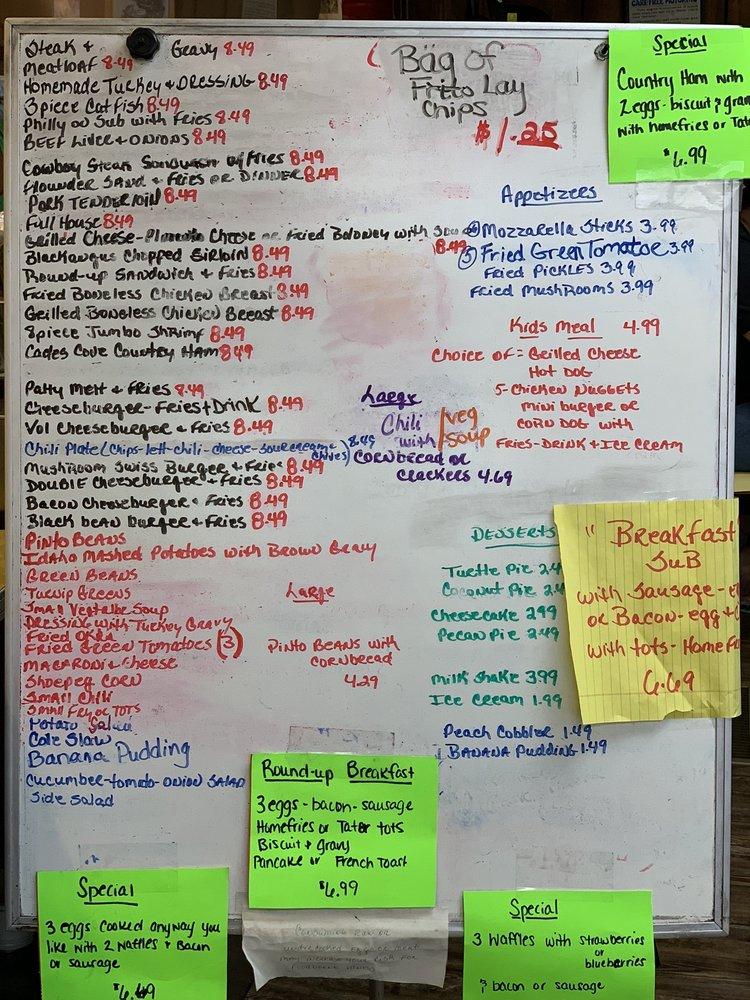 Steak + Gravy 8.49
Meatloaf 8.49
Homemade Turkey + DRESSING 8.49
3 piece Cat Fish 8.49
Philly or Sub with Fries 8.49
BEEF Liver + ONIONS 8.49
Cowboy Steak Sandwich w/ Fries 8.49
Flounder SAND + Fries OR DINNER 8.49
PORK TENDERLOIN 8.49
Full House 8.49
Grilled Cheese - Pimento Cheese or Fried Boloney with 8.49
Blackangus Chopped Sirloin 8.49
Round-up SANDWICH + Fries 8.49
Fried Boneless Chicken Breast 8.49
Grilled Boneless Chicken Breast 8.49
8piece Jumbo Shrimp 8.49
Cades Cove Country HAM 8.49
Patty Melt + Fries 8.49
Cheeseburger - Fries + Drink 8.49
Vol Cheeseburger + Fries 8.49
Chili Plate (chips-lett-chili-cheese-sourcream + chives) 8.49
Mushroom Swiss Burger + Fries 8.49
DOUBLE Cheeseburger + Fries 8.49
Bacon Cheeseburger + Fries 8.49
Black bean Burger + Fries 8.49
Pinto Beans
Idaho Mashed Potatoes with Brown Gravy
Green Beans
Turnip Greens
Small Vegetable Soup
DRESSING with Turkey Gravy
Fried Okra
Fried Green Tomatoes (3)
MACARONI + Cheese
Shoepeg Corn
Small Chili
Small Fry or TOTS
Potato Salad
Cole Slaw
Banana Pudding
Cucumber-tomato-onion SALAD
Side Salad
Bag of
Frito Lay
Chips
$1.25
Appetizers
Mozzarella Sticks 3.99
(5) Fried Green Tomatoe 3.99
Fried Pickles 3.99
Fried Mushrooms 3.99
Kids Meal 4.99
Choice of = Grilled Cheese
Hot DOG
5-Chicken Nuggets
mini burger or
CORN DOG with
FRIES-DRINK + ICE CREAM
Large
Chili / veg soup
with
CORNbread or
crackers 4.69
Large
PINTO BEANS with
CORNbread
4.29
DESSERTS
Turtle Pie
Coconut Pie
Cheesecake 2.99
Pecan Pie 2.49
Milk Shake 3.99
Ice Cream 1.99
Peach Cobbler 1.49
BANANA Pudding 1.49
Special
Country Ham with
2 eggs - biscuit +
with homefries or
$6.99
" Breakfast
SuB
with Sausage-
or Bacon-egg +
with tots-
6.69
Round-up Breakfast
3 eggs - bacon - sausage
Homefries or Tater tots
Biscuit + gravy
Pancake or French Toast
$6.99
Special
3 eggs cooked anyway you
like with 2 waffles + Bacon
or sausage
Special
3 Waffles with strawberries
or blueberries
+ bacon or sausage